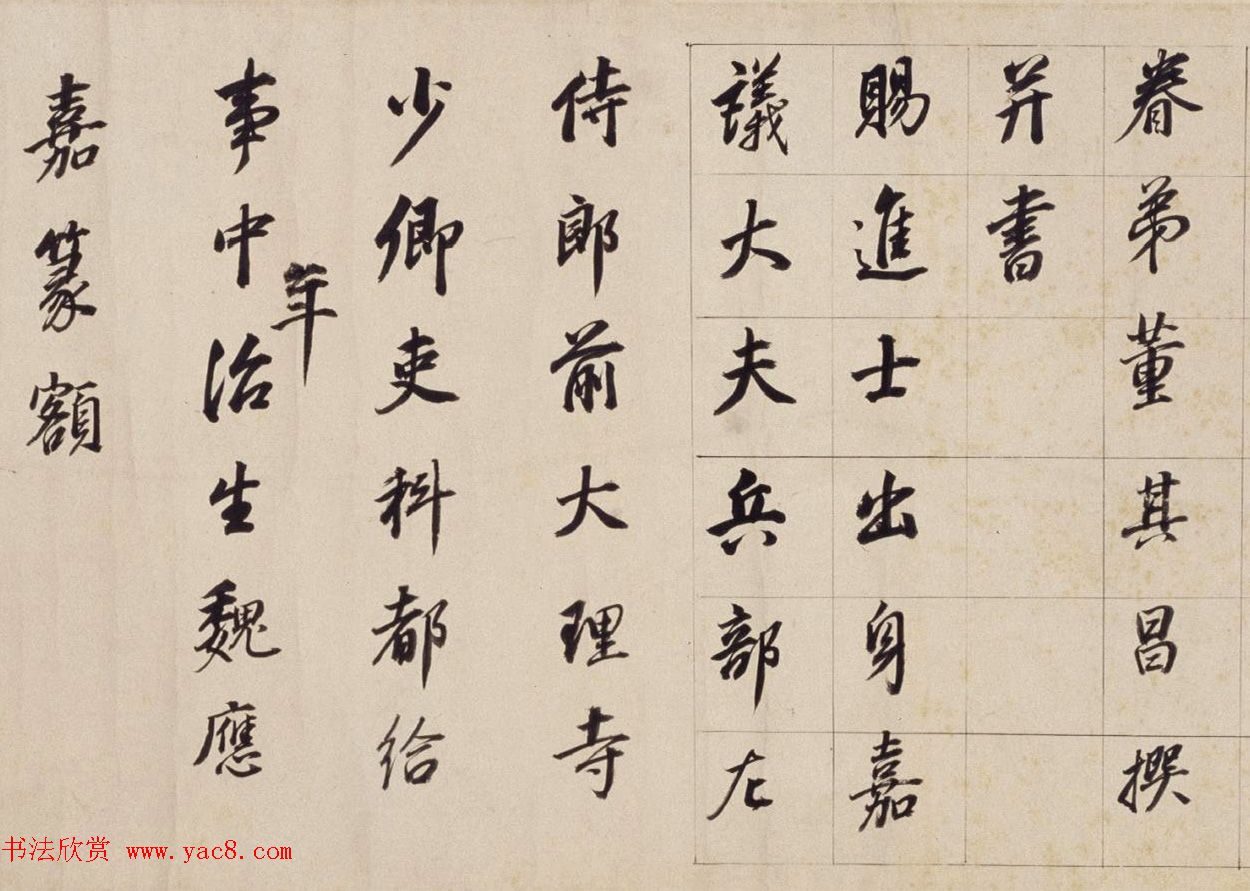 眷弟董其昌撰
并書
賜進士出身嘉
議大夫兵部左
侍郎前大理寺
少卿吏科都給
事中年治生魏應
嘉篆額
书法欣赏 www.yac8.com